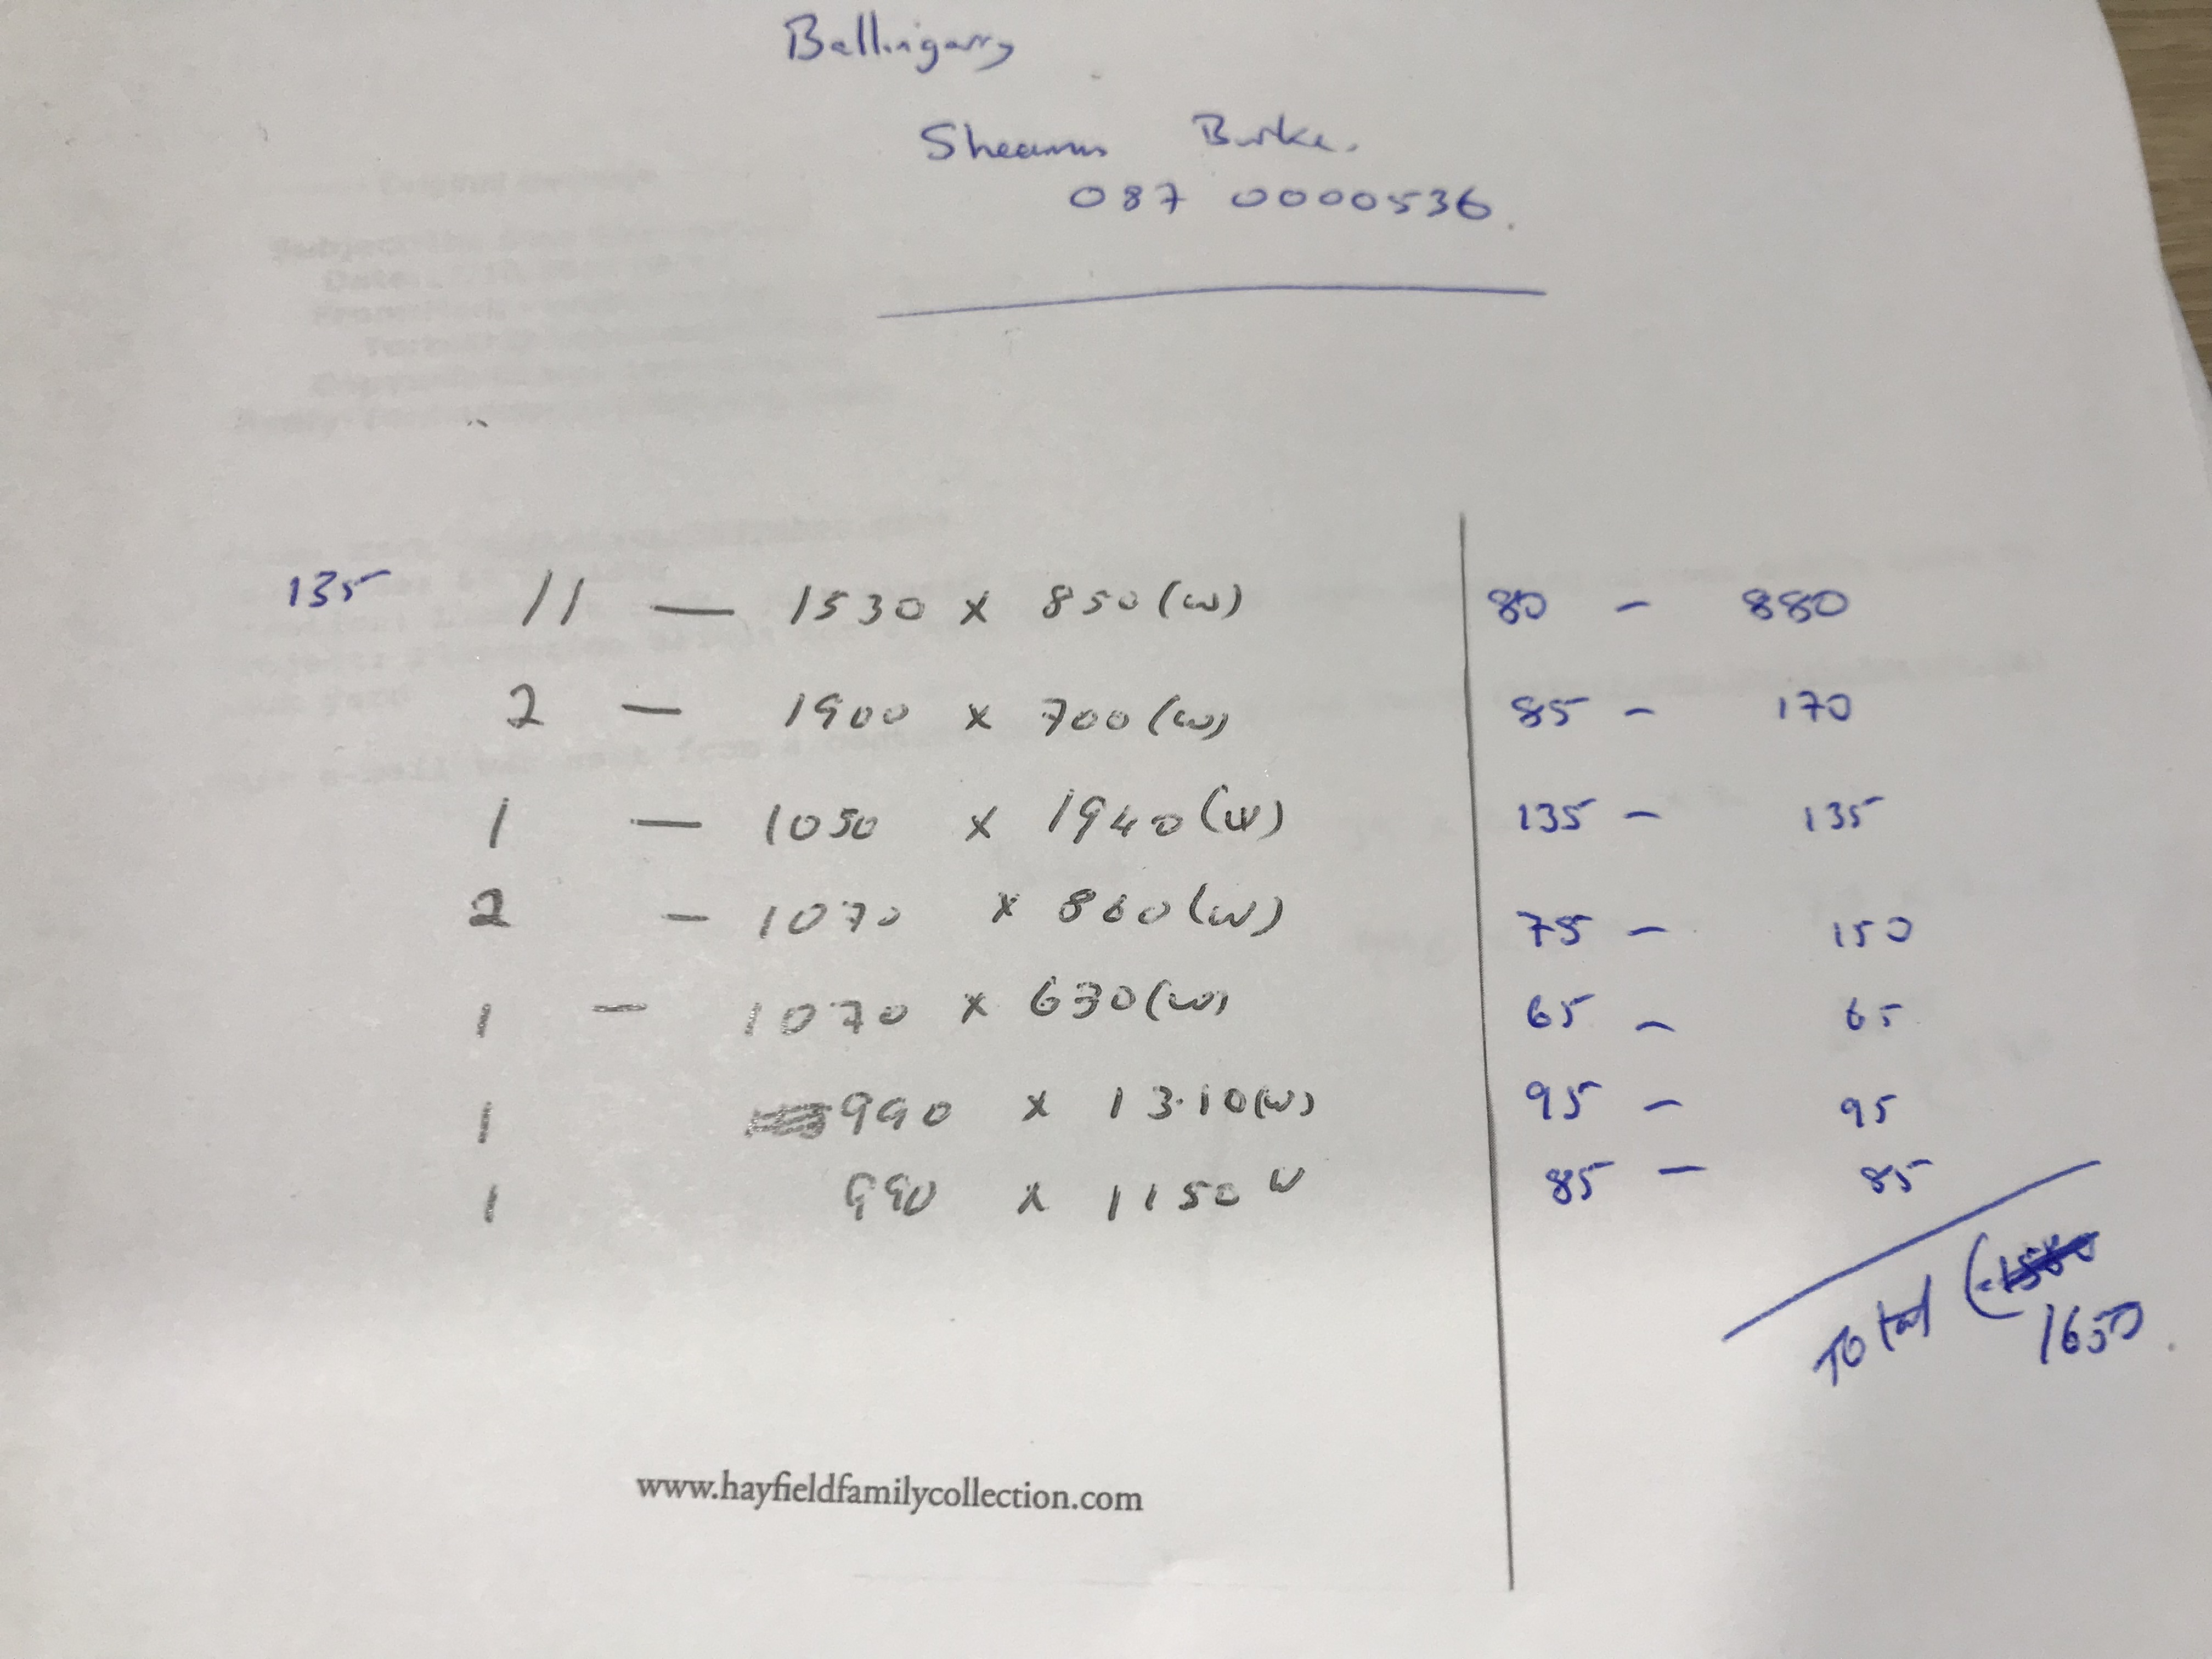 Ballingarry
Sheamus Burke.
087 0000536.
135 11 — 1530 x 850 (w) 80 - 880
2 — 1900 x 700 (w) 85 - 170
1 — 1050 x 1940 (w) 135 - 135
2 - 1070 x 860 (w) 75 - 150
1 - 1070 x 630 (w) 65 - 65
1 990 x 13.10 (w) 95 - 95
1 990 x 1150 w 85 - 85
Total
1650
www.hayfieldfamilycollection.com